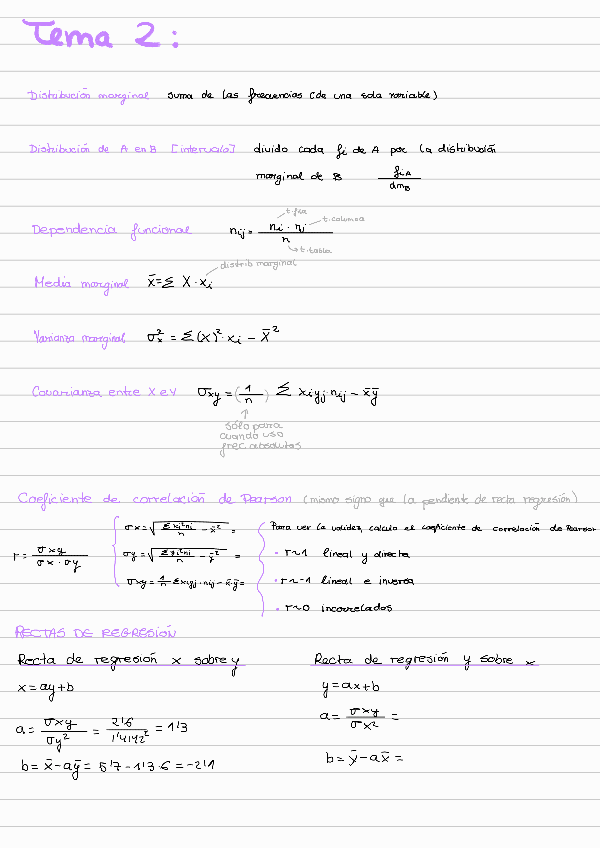 Tema 2:
Distribución marginal suma de las frecuencias (de una sola variable)
Distribución de A en B [intervalo] divido cada fi de A por la distribución
marginal de B fiA / dmB
t. fila
t. columna
Dependencia funcional nij = ni · nj / n
t. tabla
distrib marginal
Media marginal x̄ = Σ X · xi
Varianza marginal σx² = Σ(x)² · xi − X̄²
Covarianza entre X e Y σxy = (1/n) Σ xiyj · nij − x̄ȳ
sólo para
cuando uso
frec. absolutas
Coeficiente de correlación de Pearson (mismo signo que la pendiente de recta regresión)
r = σxy / σx · σy
σx = √(Σxi²ni / n − x̄²) =
σy = √(Σyi²ni / n − ȳ²) =
σxy = 1/n Σxiyj · nij − x̄·ȳ =
Para ver la validez, calculo el coeficiente de correlación de Pearson
• r∼1 lineal y directa
• r∼-1 lineal e inversa
• r∼0 incorrelados
RECTAS DE REGRESIÓN
Recta de regresión x sobre y
x = ay + b
a = σxy / σy² = 2'6 / 1'4142² = 1'3
b = x̄ − aȳ = 5'7 − 1'3·6 = −2'1
Recta de regresión y sobre x
y = ax + b
a = σxy / σx² =
b = ȳ − ax̄ =